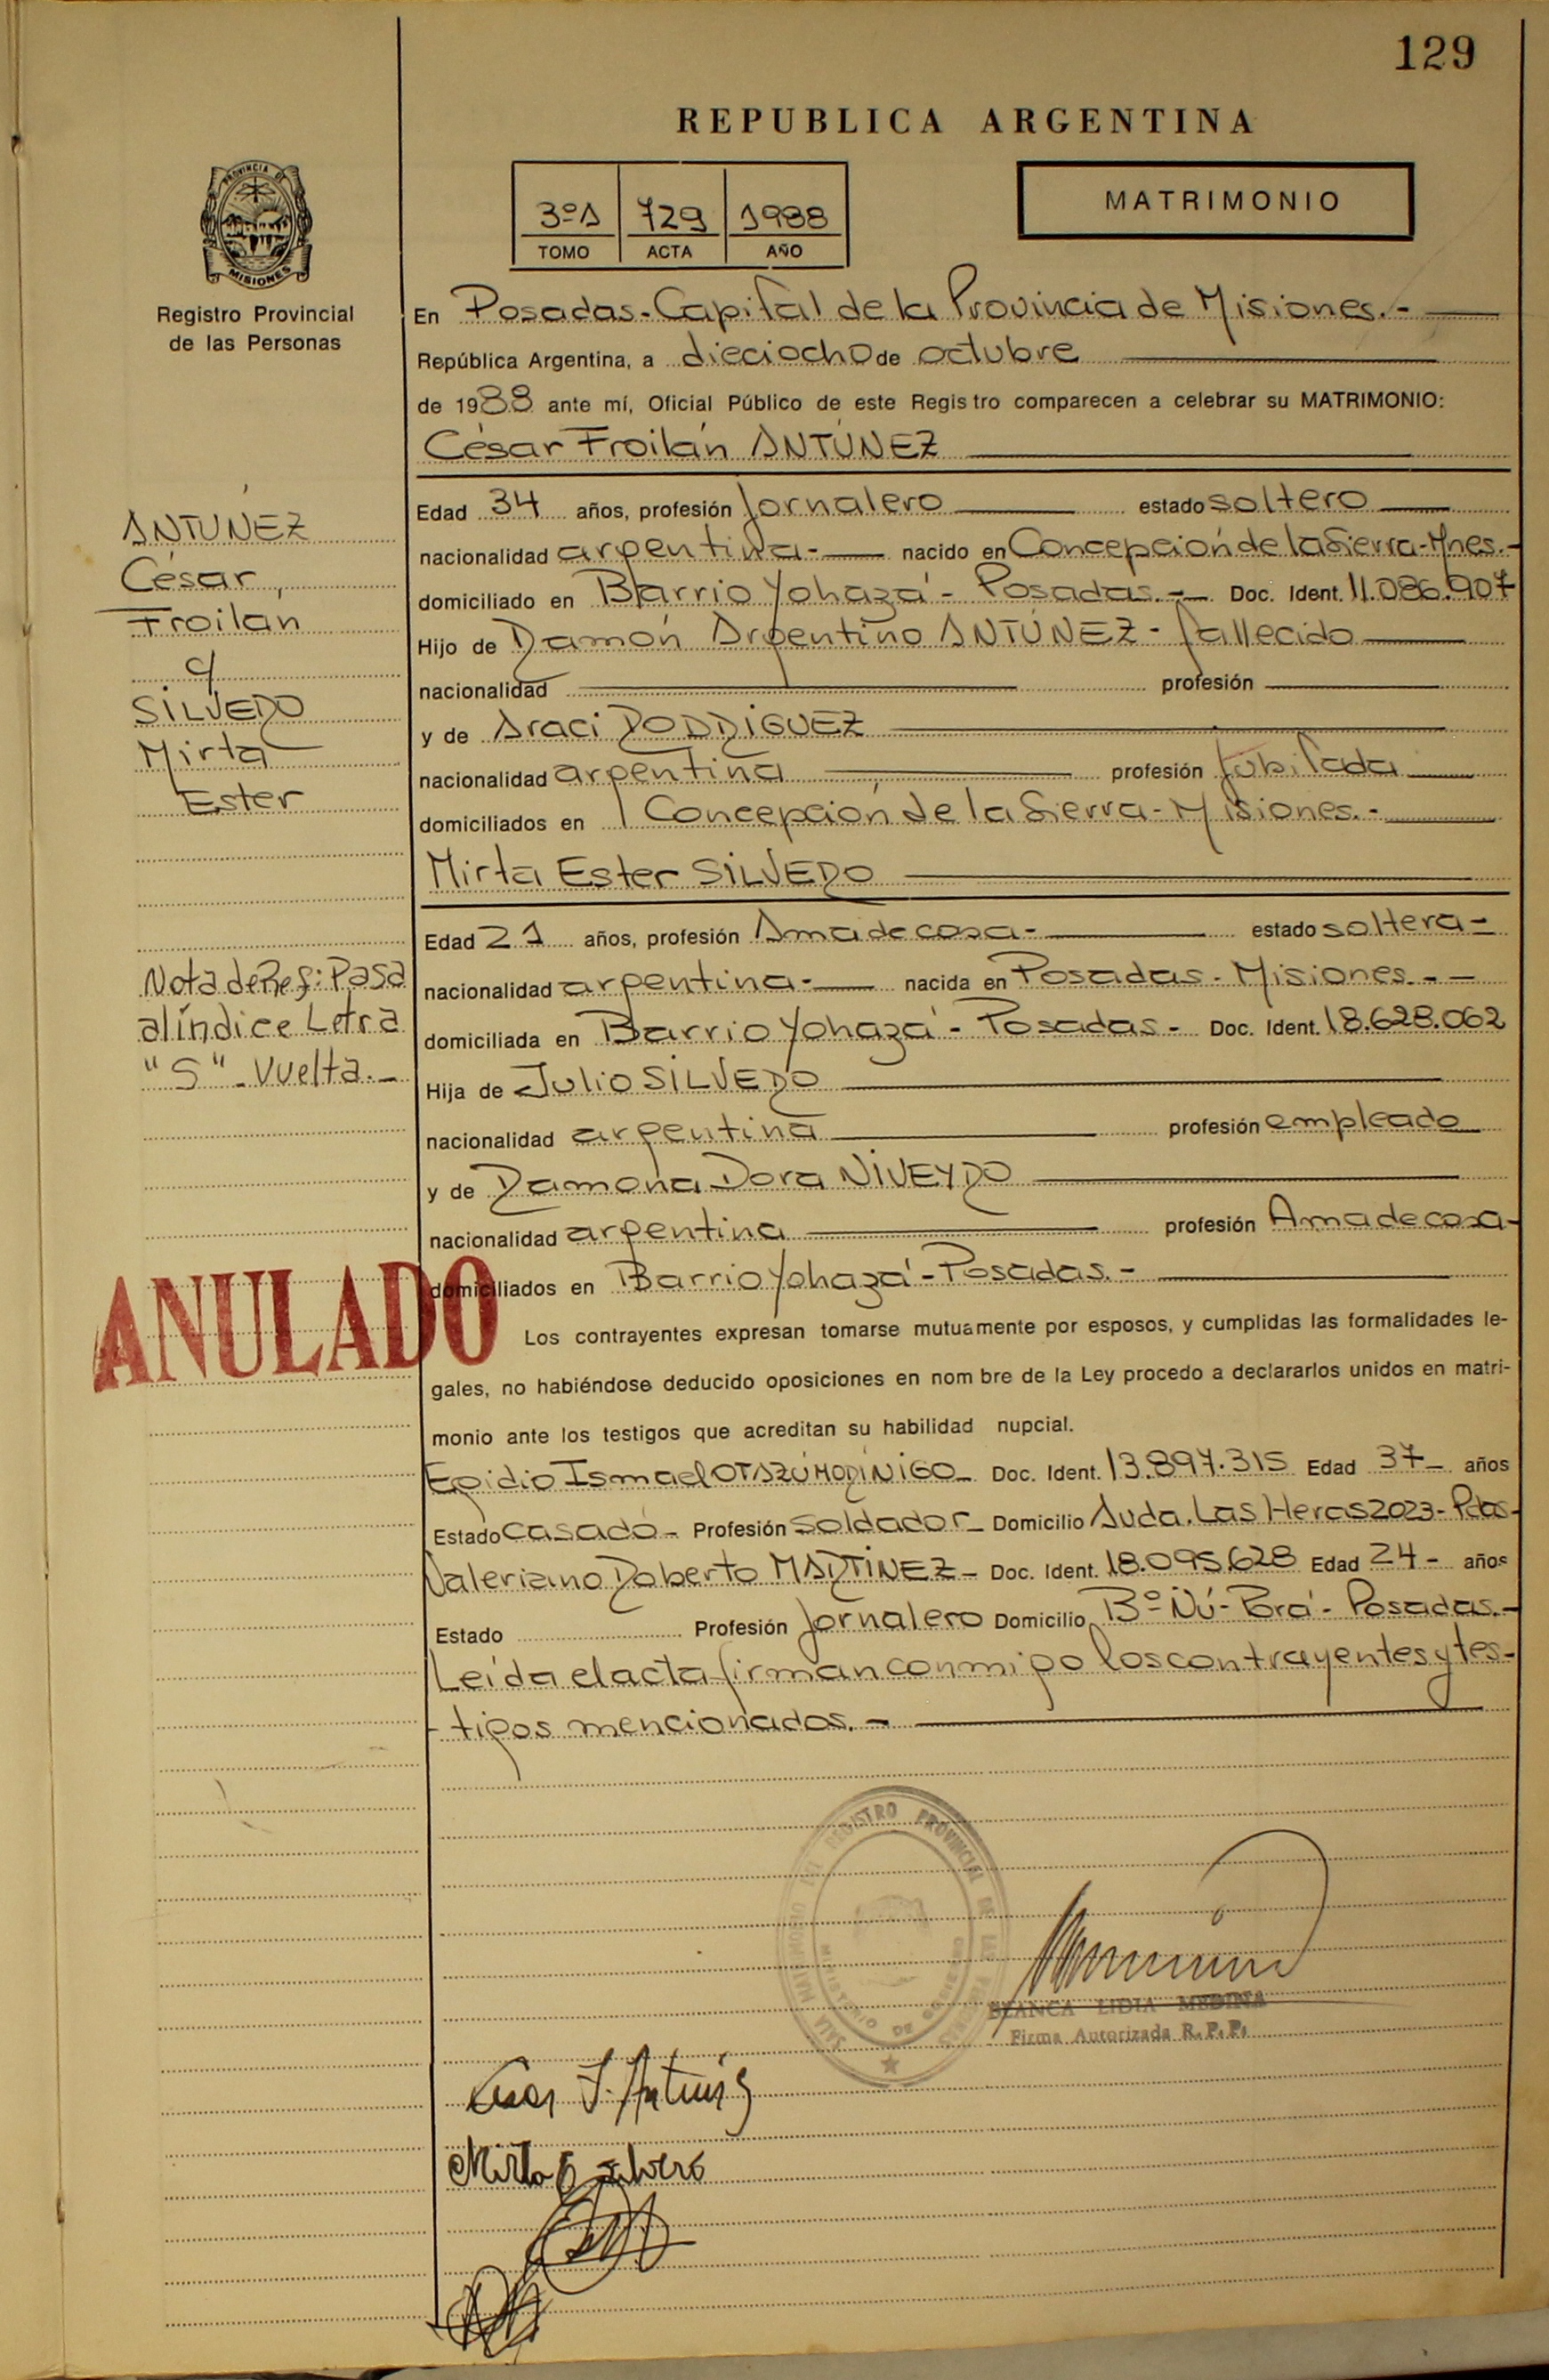 129
REPUBLICA ARGENTINA
PROVINCIA DE
MISIONES
Registro Provincial
de las Personas
3º1 729 1988
TOMO ACTA AÑO
MATRIMONIO
En Posadas-Capital de la Provincia de Misiones.-
República Argentina, a dieciocho de octubre
de 1988 ante mí, Oficial Público de este Registro comparecen a celebrar su MATRIMONIO:
César Froilán ANTÚNEZ
Edad 34 años, profesión Jornalero estado soltero
nacionalidad argentina.- nacido en Concepción de la Sierra-Mnes.-
domiciliado en Barrio Yohazá - Posadas.- Doc. Ident. 11.086.907
Hijo de Ramón Argentino ANTÚNEZ - fallecido
nacionalidad profesión
y de Araci RODRIGUEZ
nacionalidad argentina profesión Jubilada
domiciliados en Concepción de la Sierra - Misiones.-
Mirta Ester SILVERO
Edad 21 años, profesión Ama de casa- estado soltera-
nacionalidad argentina.- nacida en Posadas - Misiones.--
domiciliada en Barrio Yohazá - Posadas - Doc. Ident. 18.628.062
Hija de Julio SILVERO
nacionalidad argentina profesión empleado
y de Ramona Dora NIVEYRO
nacionalidad argentina profesión Ama de casa-
domiciliados en Barrio Yohazá - Posadas.-
Los contrayentes expresan tomarse mutuamente por esposos, y cumplidas las formalidades le-
gales, no habiéndose deducido oposiciones en nombre de la Ley procedo a declararlos unidos en matri-
monio ante los testigos que acreditan su habilidad nupcial.
Egidio Ismael OTAZÚ MORÍNIGO- Doc. Ident. 13.897.315 Edad 37- años
Estado casado- Profesión Soldador- Domicilio Avda. Las Heras 2023- Pdas-
Valeriano Roberto MARTINEZ- Doc. Ident. 18.095.628 Edad 24- años
Estado Profesión Jornalero Domicilio Bº Ñú-Porá - Posadas.-
Leída el acta firman conmigo los contrayentes y tes-
-tigos mencionados.-
ANTUNEZ
César
Froilán
c/
SILVERO
Mirta
Ester
Nota de Ref: Pasa
al índice Letra
"S" - Vuelta.-
ANULADO
REGISTRO PROVINCIAL DE LAS PERSONAS
MINISTERIO DE GOBIERNO
BLANCA LIDIA MEDINA
Firma Autorizada R.P.P.
Cesar F. Antunez
Mirta E Silvero